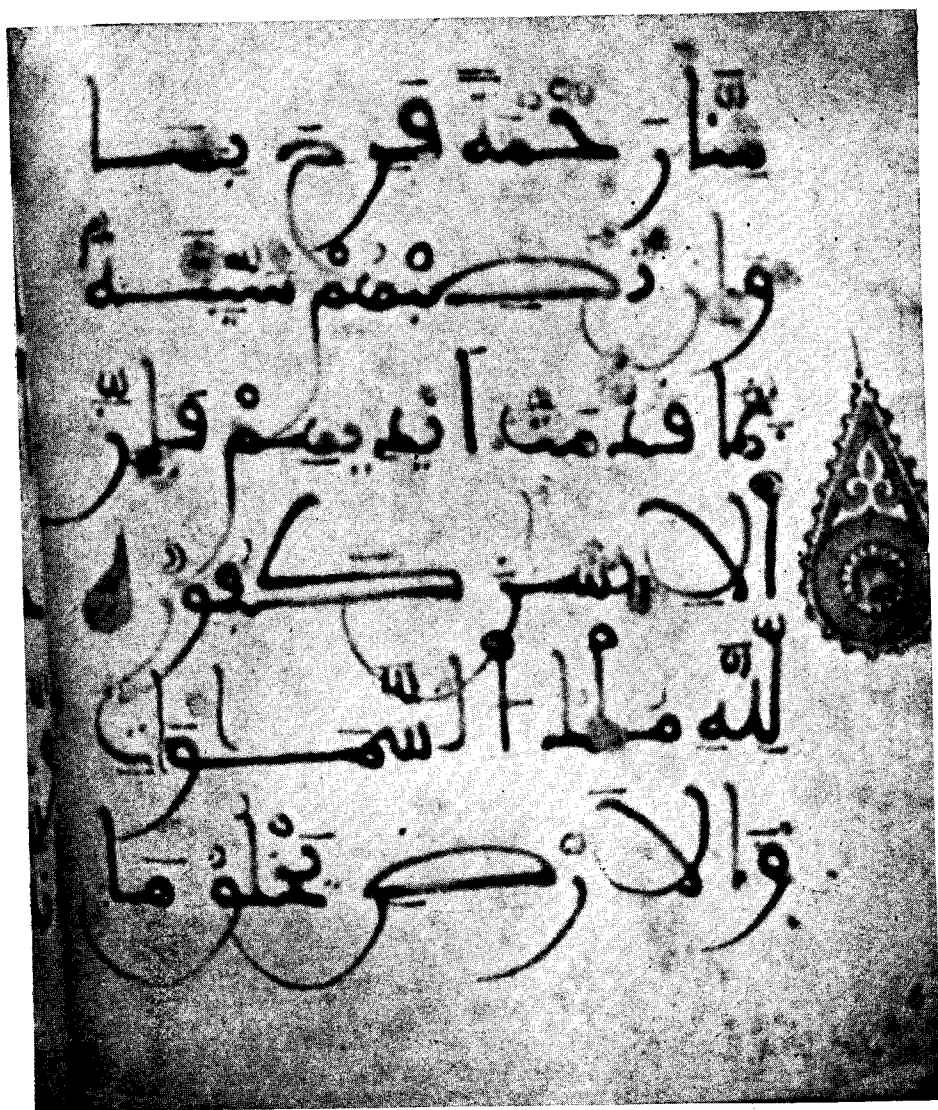 مِنَّا رَحْمَةً فَرِحَ بِهَا
وَإِن تُصِبْهُمْ سَيِّئَةٌ
بِمَا قَدَّمَتْ أَيْدِيهِمْ فَإِنَّ
ٱلْإِنسَٰنَ كَفُورٌ
لِّلَّهِ مُلْكُ ٱلسَّمَٰوَٰتِ
وَٱلْأَرْضِ يَخْلُقُ مَا